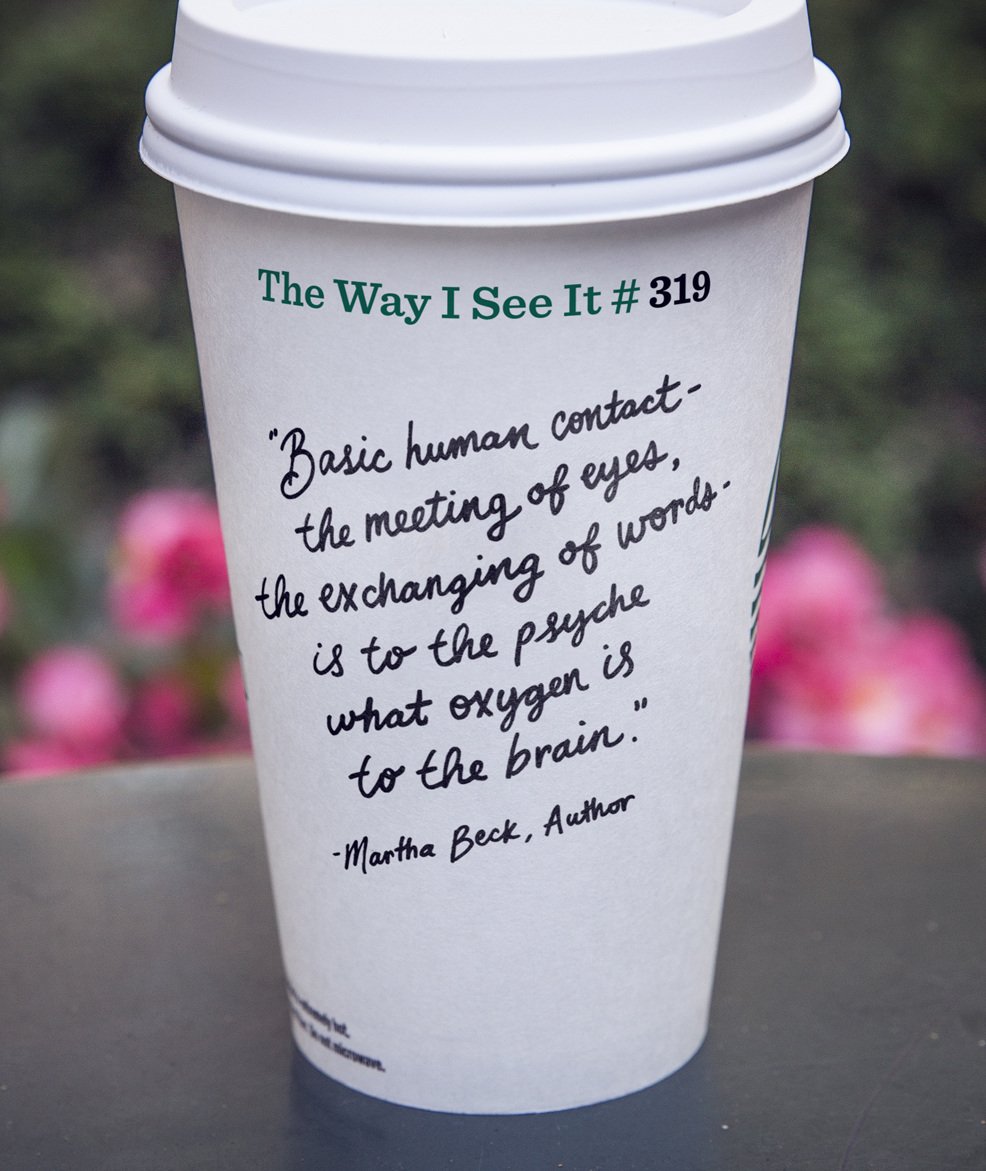 The Way I See It # 319
"Basic human contact-
the meeting of eyes,
the exchanging of words-
is to the psyche
what oxygen is
to the brain."
-Martha Beck, Author
hot.
Do not microwave.